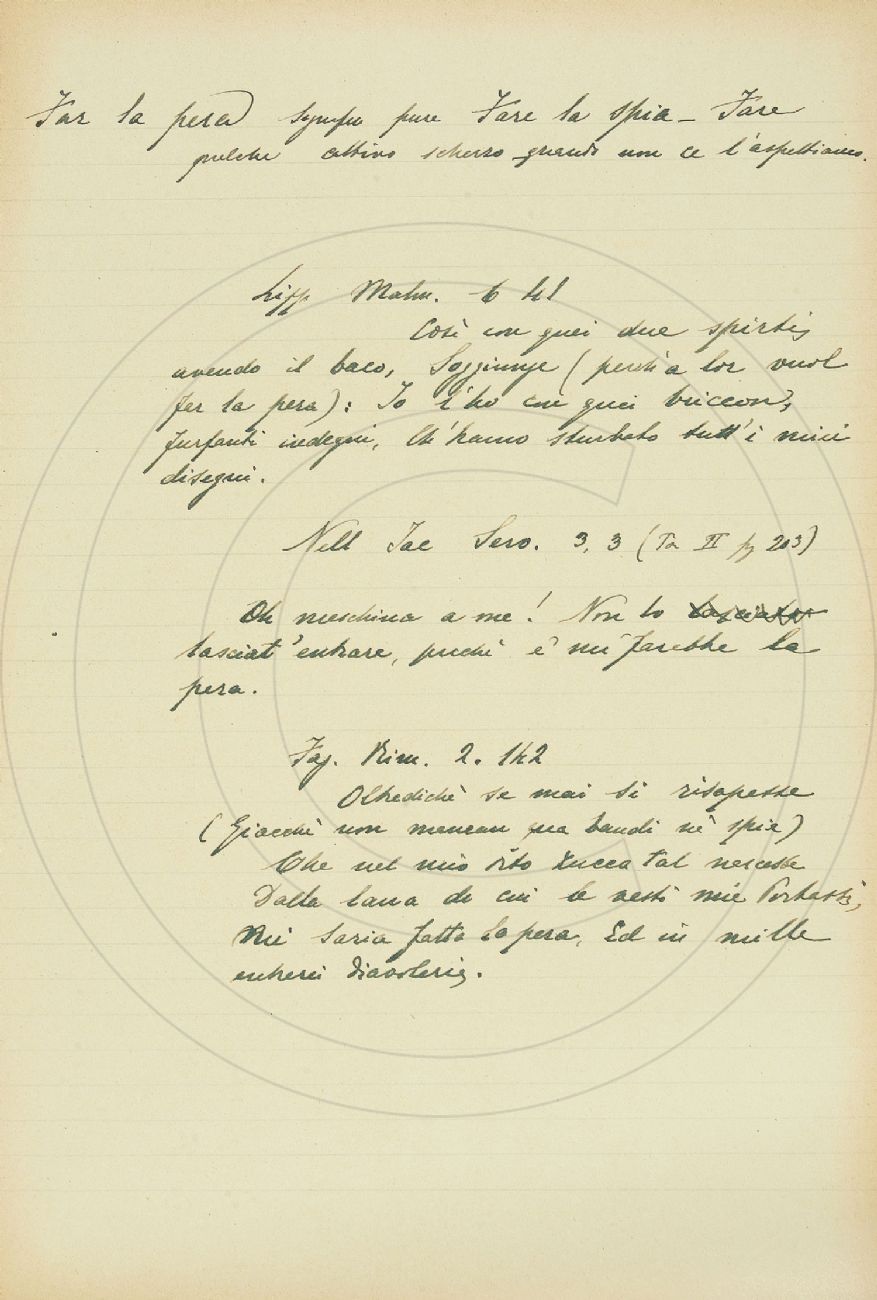 Far la pera) signfa pure Fare la spia - Fare
qualche cattivo scherzo quando non ce l'aspettiamo.
Lipp. Malm. 6 41
Così con quei due spirti
avendo il baco, Soggiunge (perch'a lor vuol
far la pera): Io l'ho con quei bricconi,
furfanti indegni, Ch'hanno sturbato tutt'i miei
disegni.
Nell Iac Serv. 3, 3 (To II pg 203)
Oh meschina a me! Non lo lasciate
lasciat'entrare, perchè e' mi farebbe la
pera.
Fag. Rim. 2. 142
Oltredichè se mai si risapesse
(Giacchè non mancan qua bandi nè spie)
Che nel mio sito zucca tal nascesse
Dalla lana di cui le vesti mie
Mi saria fatta la pera, Ed in mille
entrerei diavolerie.